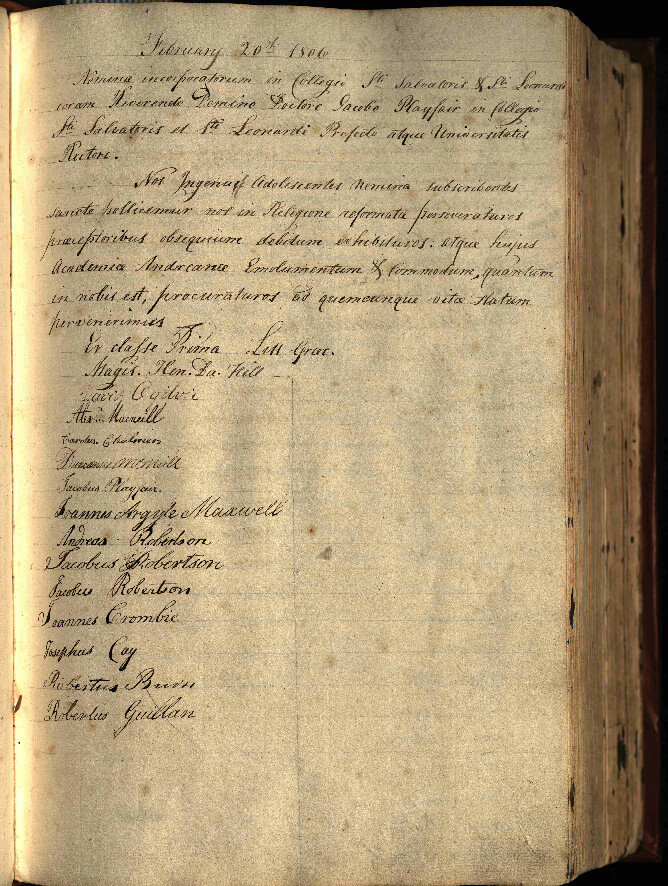 February 20th 1806
Nomina incorporatorum in Collegio Sti Salvatoris & Sti Leonardi
coram Reverendo Domino Doctore Jacobo Playfair in Collegio
Sti Salvatoris et Sti Leonardi Prefecto atque Universitatis
Rectore.
Nos Ingenui Adolescentes nomina subscribentes
sancte pollicemur nos in Religione reformata perseveraturos
præceptoribus obsequium debitum exhibituros: atque hujus
Academiæ Andreanæ Emolumentum & Commodum, quantum
in nobis est, procuraturos ad quemcunque vitæ statum
pervenerimus
Ex classe Prima Litt. Græc.
Magis. Hen. Da. Hill
David Ogilvie
Alexr Macneill
Carolus Chalmers
Duncanus McNeill
Jacobus Playfair.
Joannes Argyle Maxwell
Andreas Robertson
Jacobus Robertson
Jacobus Robertson
Joannes Crombie
Josephus Coy
Robertus Burn
Robertus Guillan